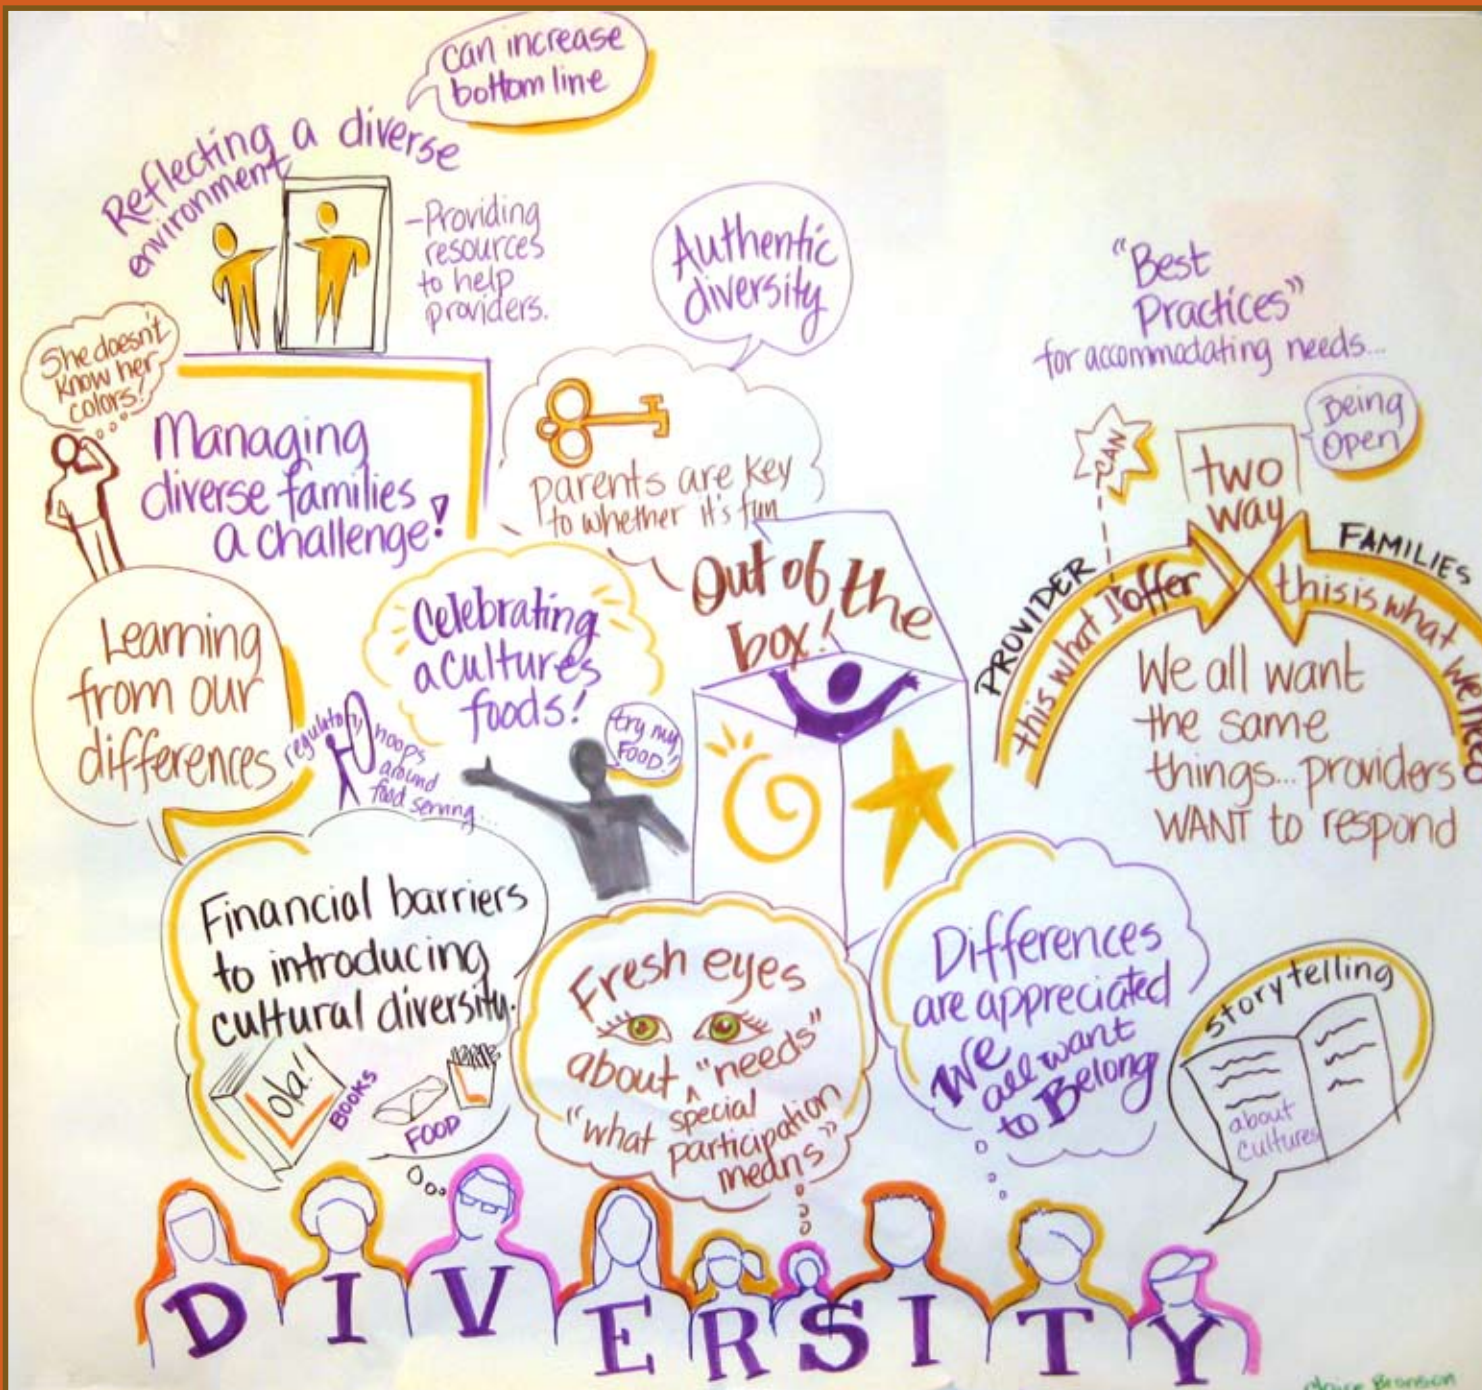 can increase
bottom line
Reflecting a diverse
environment
-Providing
resources
to help
providers.
Authentic
diversity
"Best
Practices"
for accommodating needs...
She doesn't
know her
colors!
Managing
diverse families
a challenge!
parents are key
to whether it's fun
CAN
two
way
Being
Open
PROVIDER
this what I offer
FAMILIES
this is what we need
We all want
the same
things... providers
WANT to respond
Out of the
box!
Learning
from our
differences
Celebrating
a cultures
foods!
regulatory hoops
around
food serving...
try my
FOOD!
Financial barriers
to introducing
cultural diversity.
ola!
BOOKS
FOOD
Fresh eyes
about special "needs"
"what participation
means"
Differences
are appreciated
We
all want
to Belong
storytelling
about
cultures
DIVERSITY
Bronson